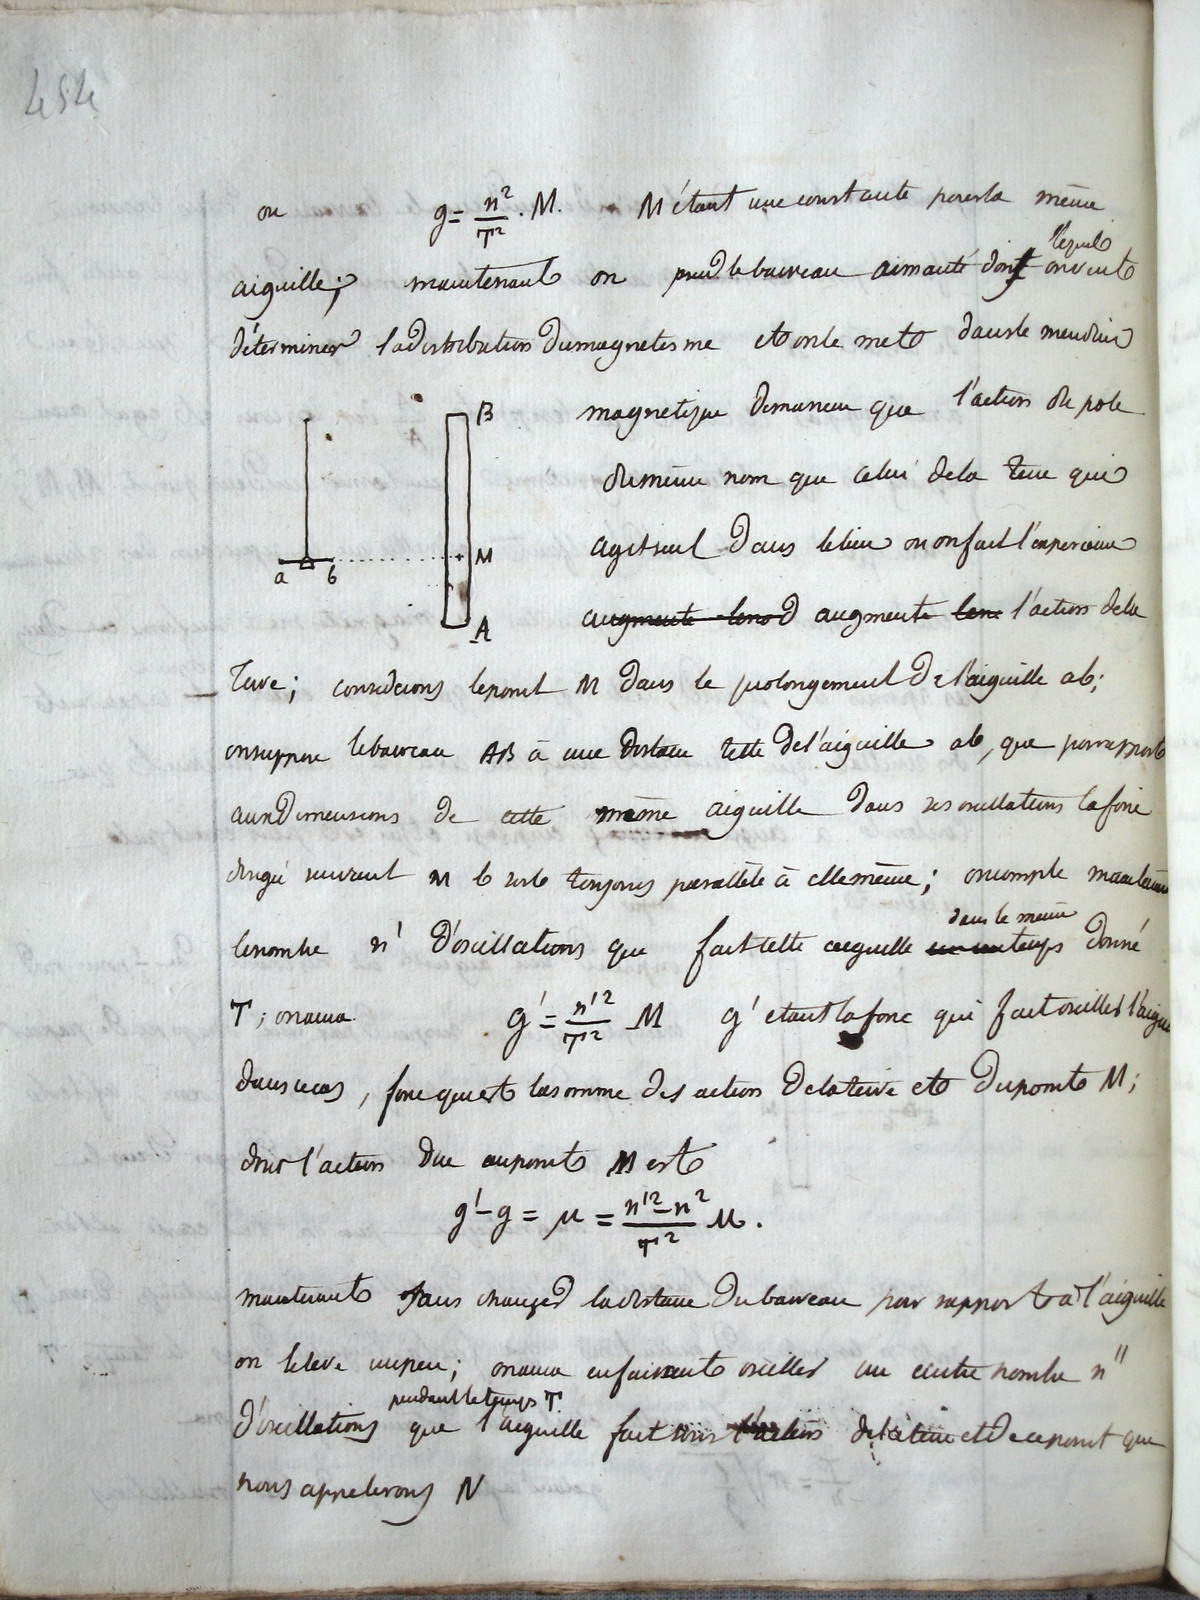 454
ou g = n²/T² . M. M étant une constante pour la même
lequel
aiguille; maintenant on prend le barreau aimanté dont on veut
déterminer la distribution du magnetisme et on le met dans le meridien
magnetique de maniere que l'action du pole
du même nom que celui de la terre qui
agit seul dans le lieu ou on fait l'experience
augmente augmente l'action de la
B
M
a b
A
terre; considerons le point M dans le prolongement de l'aiguille ab;
on suppose le barreau AB à une distance telle de l'aiguille ab, que par rapport
aux dimensions de cette même aiguille dans ses oscillations la force
dirigé suivant M b reste toujours parallèle à elle même; on compte maintenant
dans le même
le nombre n' d'oscillations que fait cette aiguille un temps donné
T; on aura g' = n'²/T² M g' etant la force qui fait osciller l'aiguille
dans ce cas, force qui est la somme des action de la terre et du point M;
donc l'action due au point M est
g' - g = μ = n'² - n²/T² M.
maintenant sans changer la distance du barreau par rapport à l'aiguille
on l'eleve un peu; on aura en faisant osciller un autre nombre n''
pendant le temps T.
d'oscillations que l'aiguille fait sous l'action de la terre et de ce point que
nous appelerons N